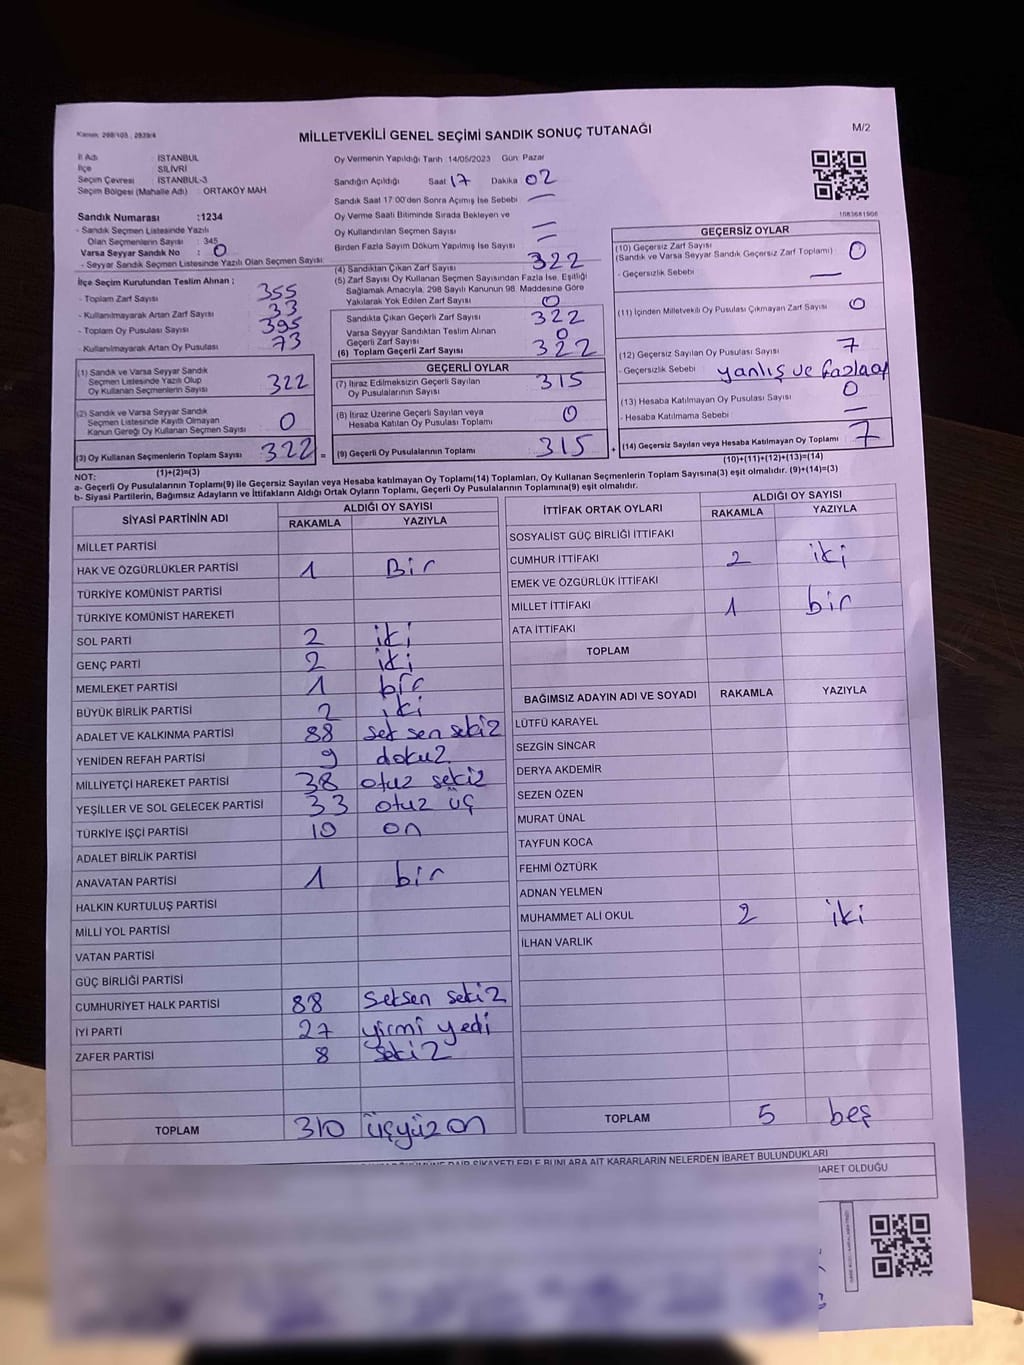 Kanun: 298/105 , 2839/4
MİLLETVEKİLİ GENEL SEÇİMİ SANDIK SONUÇ TUTANAĞI
M/2
İl Adı : İSTANBUL
İlçe : SİLİVRİ
Seçim Çevresi : İSTANBUL-3
Seçim Bölgesi (Mahalle Adı) : ORTAKÖY MAH
Sandık Numarası :1234
- Sandık Seçmen Listesinde Yazılı
Olan Seçmenlerin Sayısı : 345
Varsa Seyyar Sandık No : 0
- Seyyar Sandık Seçmen Listesinde Yazılı Olan Seçmen Sayısı
Oy Vermenin Yapıldığı Tarih 14/05/2023 Gün: Pazar
Sandığın Açıldığı Saat 17 Dakika 02
Sandık Saat 17 00'den Sonra Açımış İse Sebebi —
Oy Verme Saati Bitiminde Sırada Bekleyen ve
Oy Kullandırılan Seçmen Sayısı —
Birden Fazla Sayım Döküm Yapılmış İse Sayısı —
İlçe Seçim Kurulundan Teslim Alınan ;
- Toplam Zarf Sayısı 355
- Kullanılmayarak Artan Zarf Sayısı 33
- Toplam Oy Pusulası Sayısı 395
- Kullanılmayarak Artan Oy Pusulası 73
(1) Sandık ve Varsa Seyyar Sandık
Seçmen Listesinde Yazılı Olup
Oy Kullanan Seçmenlerin Sayısı 322
(2) Sandık ve Varsa Seyyar Sandık
Seçmen Listesinde Kayıtlı Olmayan
Kanun Gereği Oy Kullanan Seçmen Sayısı 0
(3) Oy Kullanan Seçmenlerin Toplam Sayısı 322 =
(1)+(2)=(3)
(4) Sandıktan Çıkan Zarf Sayısı 322
(5) Zarf Sayısı Oy Kullanan Seçmen Sayısından Fazla İse, Eşitliği
Sağlamak Amacıyla, 298 Sayılı Kanunun 98. Maddesine Göre
Yakılarak Yok Edilen Zarf Sayısı 0
Sandıkta Çıkan Geçerli Zarf Sayısı 322
Varsa Seyyar Sandıktan Teslim Alınan
Geçerli Zarf Sayısı 0
(6) Toplam Geçerli Zarf Sayısı 322
GEÇERLİ OYLAR
(7) İtiraz Edilmeksizin Geçerli Sayılan
Oy Pusulalarının Sayısı 315
(8) İtiraz Üzerine Geçerli Sayılan veya
Hesaba Katılan Oy Pusulası Toplamı 0
(9) Geçerli Oy Pusulalarının Toplamı 315 +
1683681906
GEÇERSİZ OYLAR
(10) Geçersiz Zarf Sayısı
(Sandık ve Varsa Seyyar Sandık Geçersiz Zarf Toplamı) 0
- Geçersizlik Sebebi —
(11) İçinden Milletvekili Oy Pusulası Çıkmayan Zarf Sayısı 0
(12) Geçersiz Sayılan Oy Pusulası Sayısı 7
- Geçersizlik Sebebi yanlış ve fazla
(13) Hesaba Katılmayan Oy Pusulası Sayısı 0
- Hesaba Katılmama Sebebi —
(14) Geçersiz Sayılan veya Hesaba Katılmayan Oy Toplamı 7
(10)+(11)+(12)+(13)=(14)
NOT:
a- Geçerli Oy Pusulalarının Toplamı(9) ile Geçersiz Sayılan veya Hesaba katılmayan Oy Toplamı(14) Toplamları, Oy Kullanan Seçmenlerin Toplam Sayısına(3) eşit olmalıdır. (9)+(14)=(3)
b- Siyasi Partilerin, Bağımsız Adayların ve İttifakların Aldığı Ortak Oyların Toplamı, Geçerli Oy Pusulalarının Toplamına(9) eşit olmalıdır.
SİYASİ PARTİNİN ADI ALDIĞI OY SAYISI
RAKAMLA YAZIYLA
MİLLET PARTİSİ
HAK VE ÖZGÜRLÜKLER PARTİSİ 1 Bir
TÜRKİYE KOMÜNİST PARTİSİ
TÜRKİYE KOMÜNİST HAREKETİ
SOL PARTİ 2 iki
GENÇ PARTİ 2 iki
MEMLEKET PARTİSİ 1 bir
BÜYÜK BİRLİK PARTİSİ 2 iki
ADALET VE KALKINMA PARTİSİ 88 seksen sekiz
YENİDEN REFAH PARTİSİ 9 dokuz
MİLLİYETÇİ HAREKET PARTİSİ 38 otuz sekiz
YEŞİLLER VE SOL GELECEK PARTİSİ 33 otuz üç
TÜRKİYE İŞÇİ PARTİSİ 10 on
ADALET BİRLİK PARTİSİ
ANAVATAN PARTİSİ 1 bir
HALKIN KURTULUŞ PARTİSİ
MİLLİ YOL PARTİSİ
VATAN PARTİSİ
GÜÇ BİRLİĞİ PARTİSİ
CUMHURİYET HALK PARTİSİ 88 seksen sekiz
İYİ PARTİ 27 yirmi yedi
ZAFER PARTİSİ 8 sekiz
TOPLAM 310 üçyüz on
İTTİFAK ORTAK OYLARI ALDIĞI OY SAYISI
RAKAMLA YAZIYLA
SOSYALİST GÜÇ BİRLİĞİ İTTİFAKI
CUMHUR İTTİFAKI 2 iki
EMEK VE ÖZGÜRLÜK İTTİFAKI
MİLLET İTTİFAKI 1 bir
ATA İTTİFAKI
TOPLAM
BAĞIMSIZ ADAYIN ADI VE SOYADI RAKAMLA YAZIYLA
LÜTFÜ KARAYEL
SEZGİN SİNCAR
DERYA AKDEMİR
SEZEN ÖZEN
MURAT ÜNAL
TAYFUN KOCA
FEHMİ ÖZTÜRK
ADNAN YELMEN
MUHAMMET ALİ OKUL 2 iki
İLHAN VARLIK
TOPLAM 5 beş
DAİR ŞİKAYETLERLE BUNLARA AİT KARARLARIN NELERDEN İBARET BULUNDUKLARI
OLDUĞU